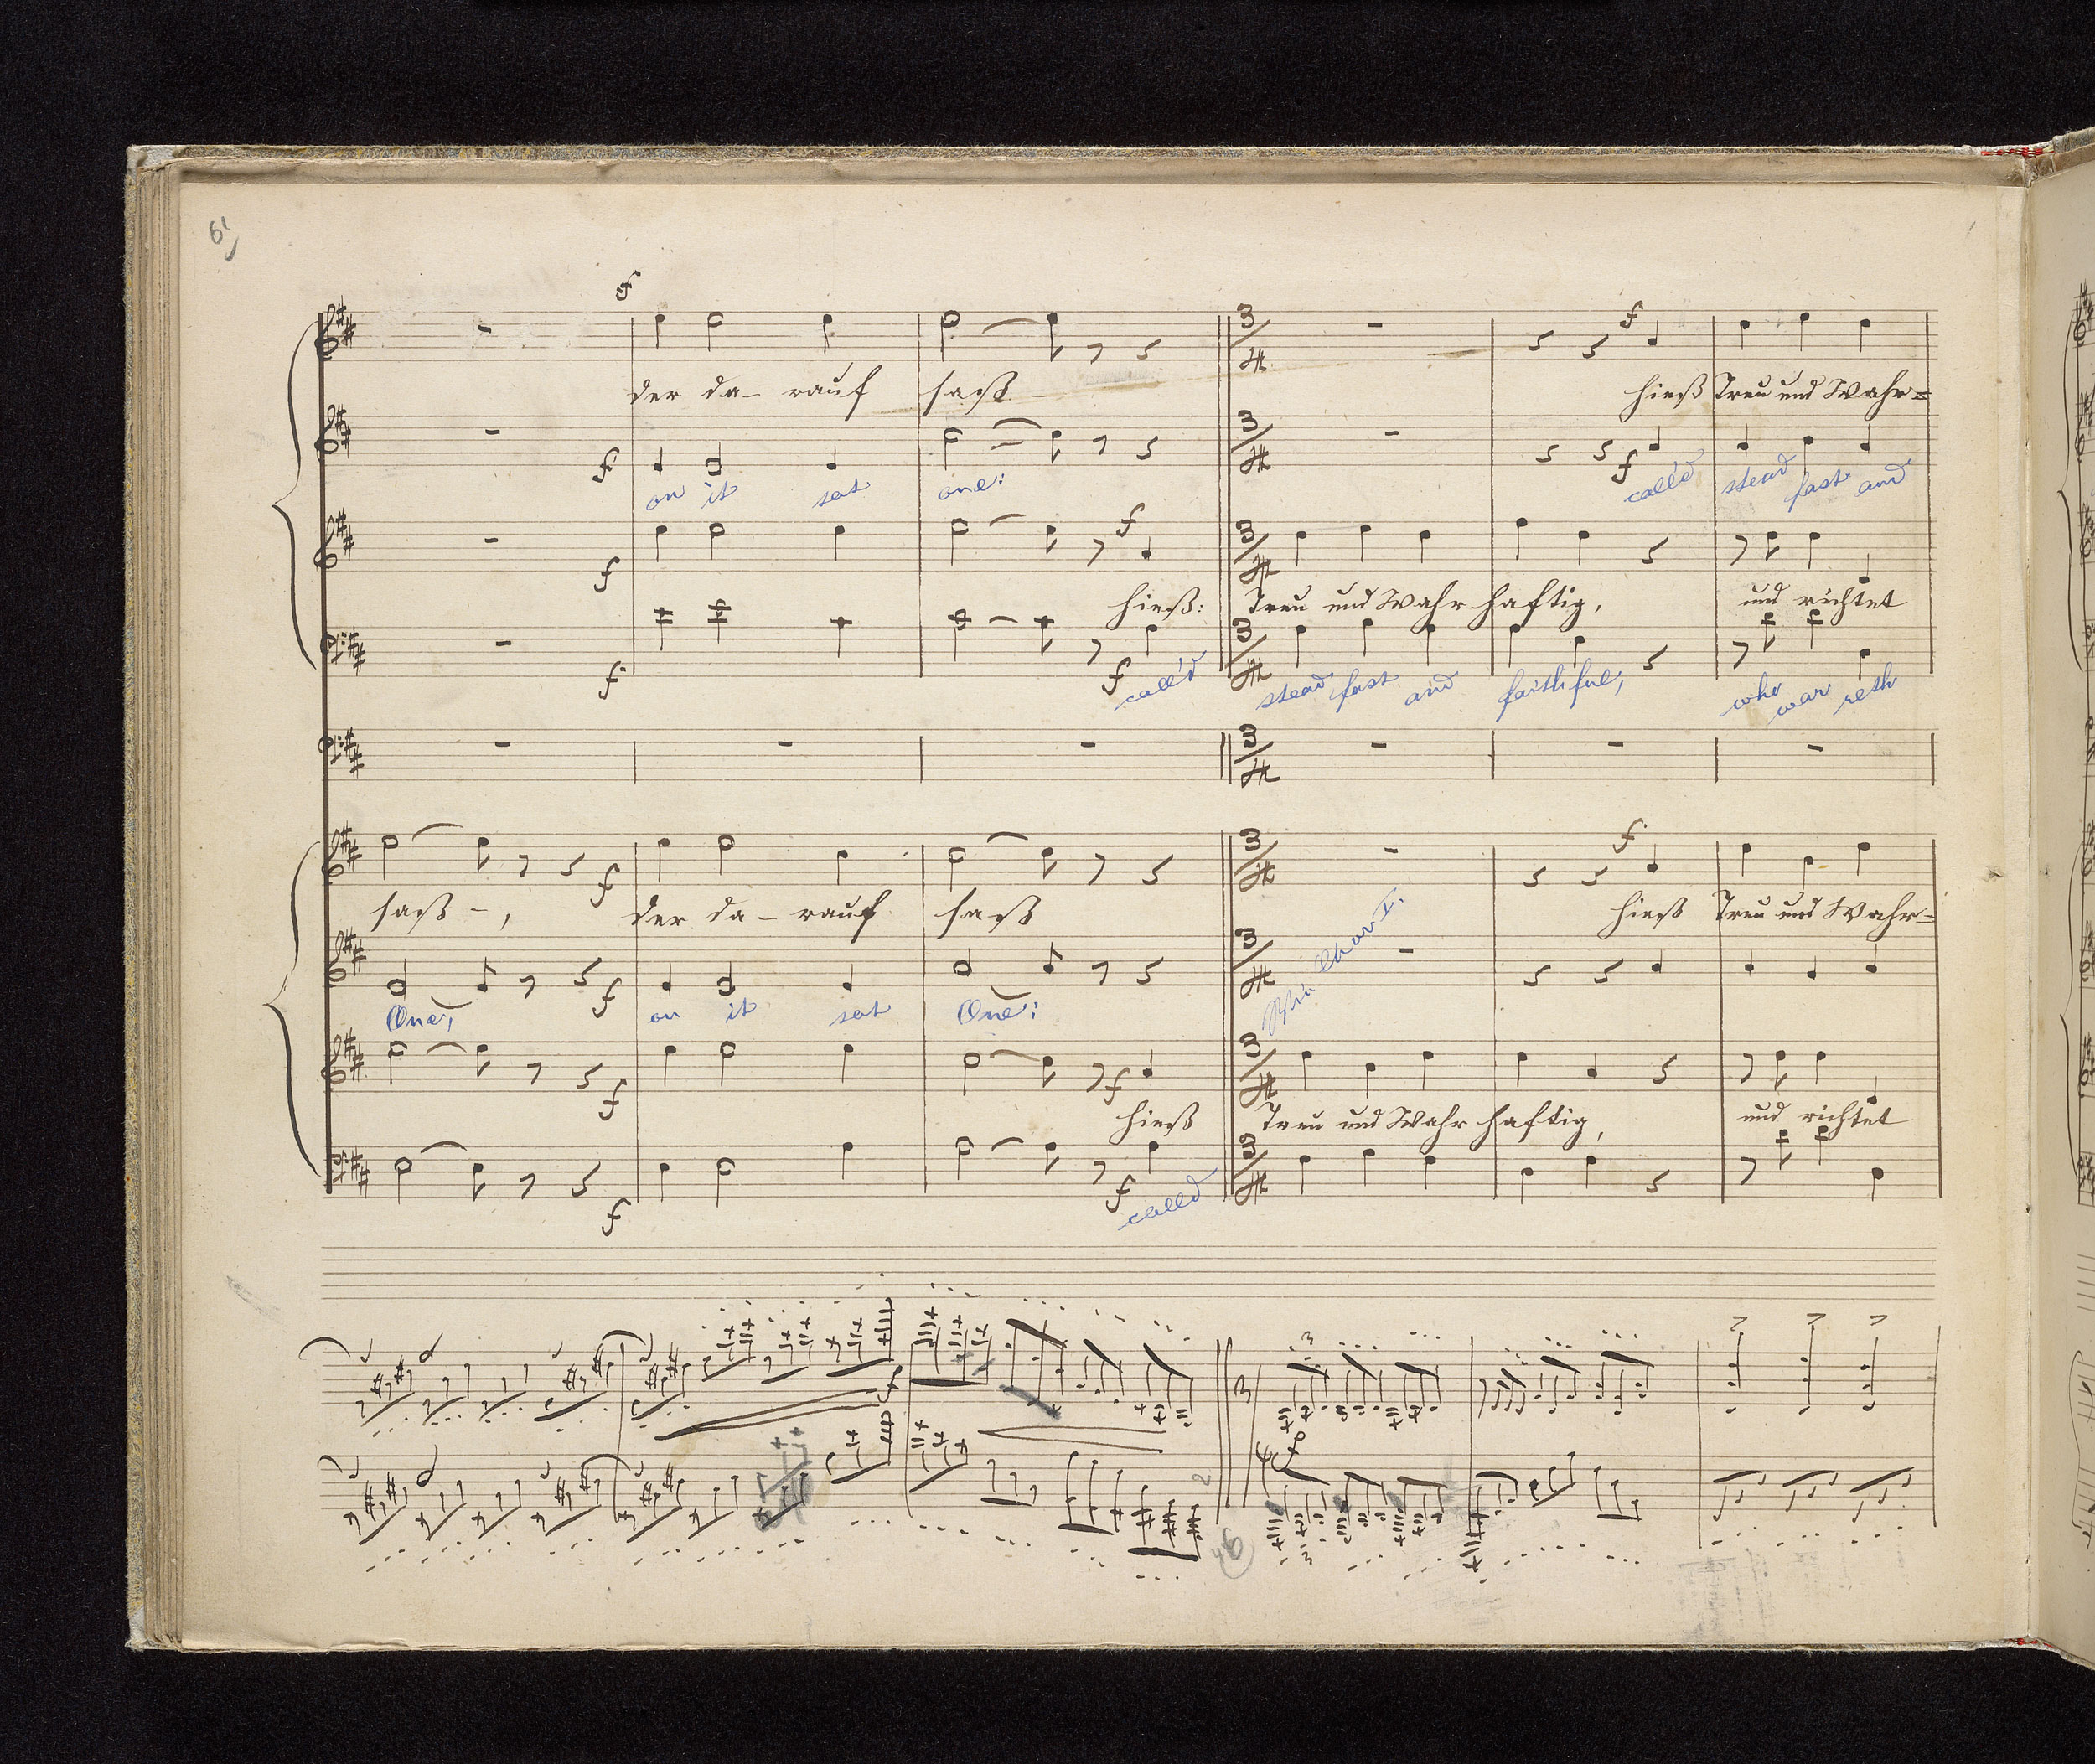 61
f
der da- rauf saß - hieß Treu und Wahr=
on it sat one: call'd stead fast and
hieß: Treu und Wahr haftig, und richtet
call'd stead fast and faithful, who war reth
saß -, der da- rauf saß hieß Treu und Wahr=
One, on it sat One:
wie Chor I.
hieß Treu und Wahr haftig, und richtet
called